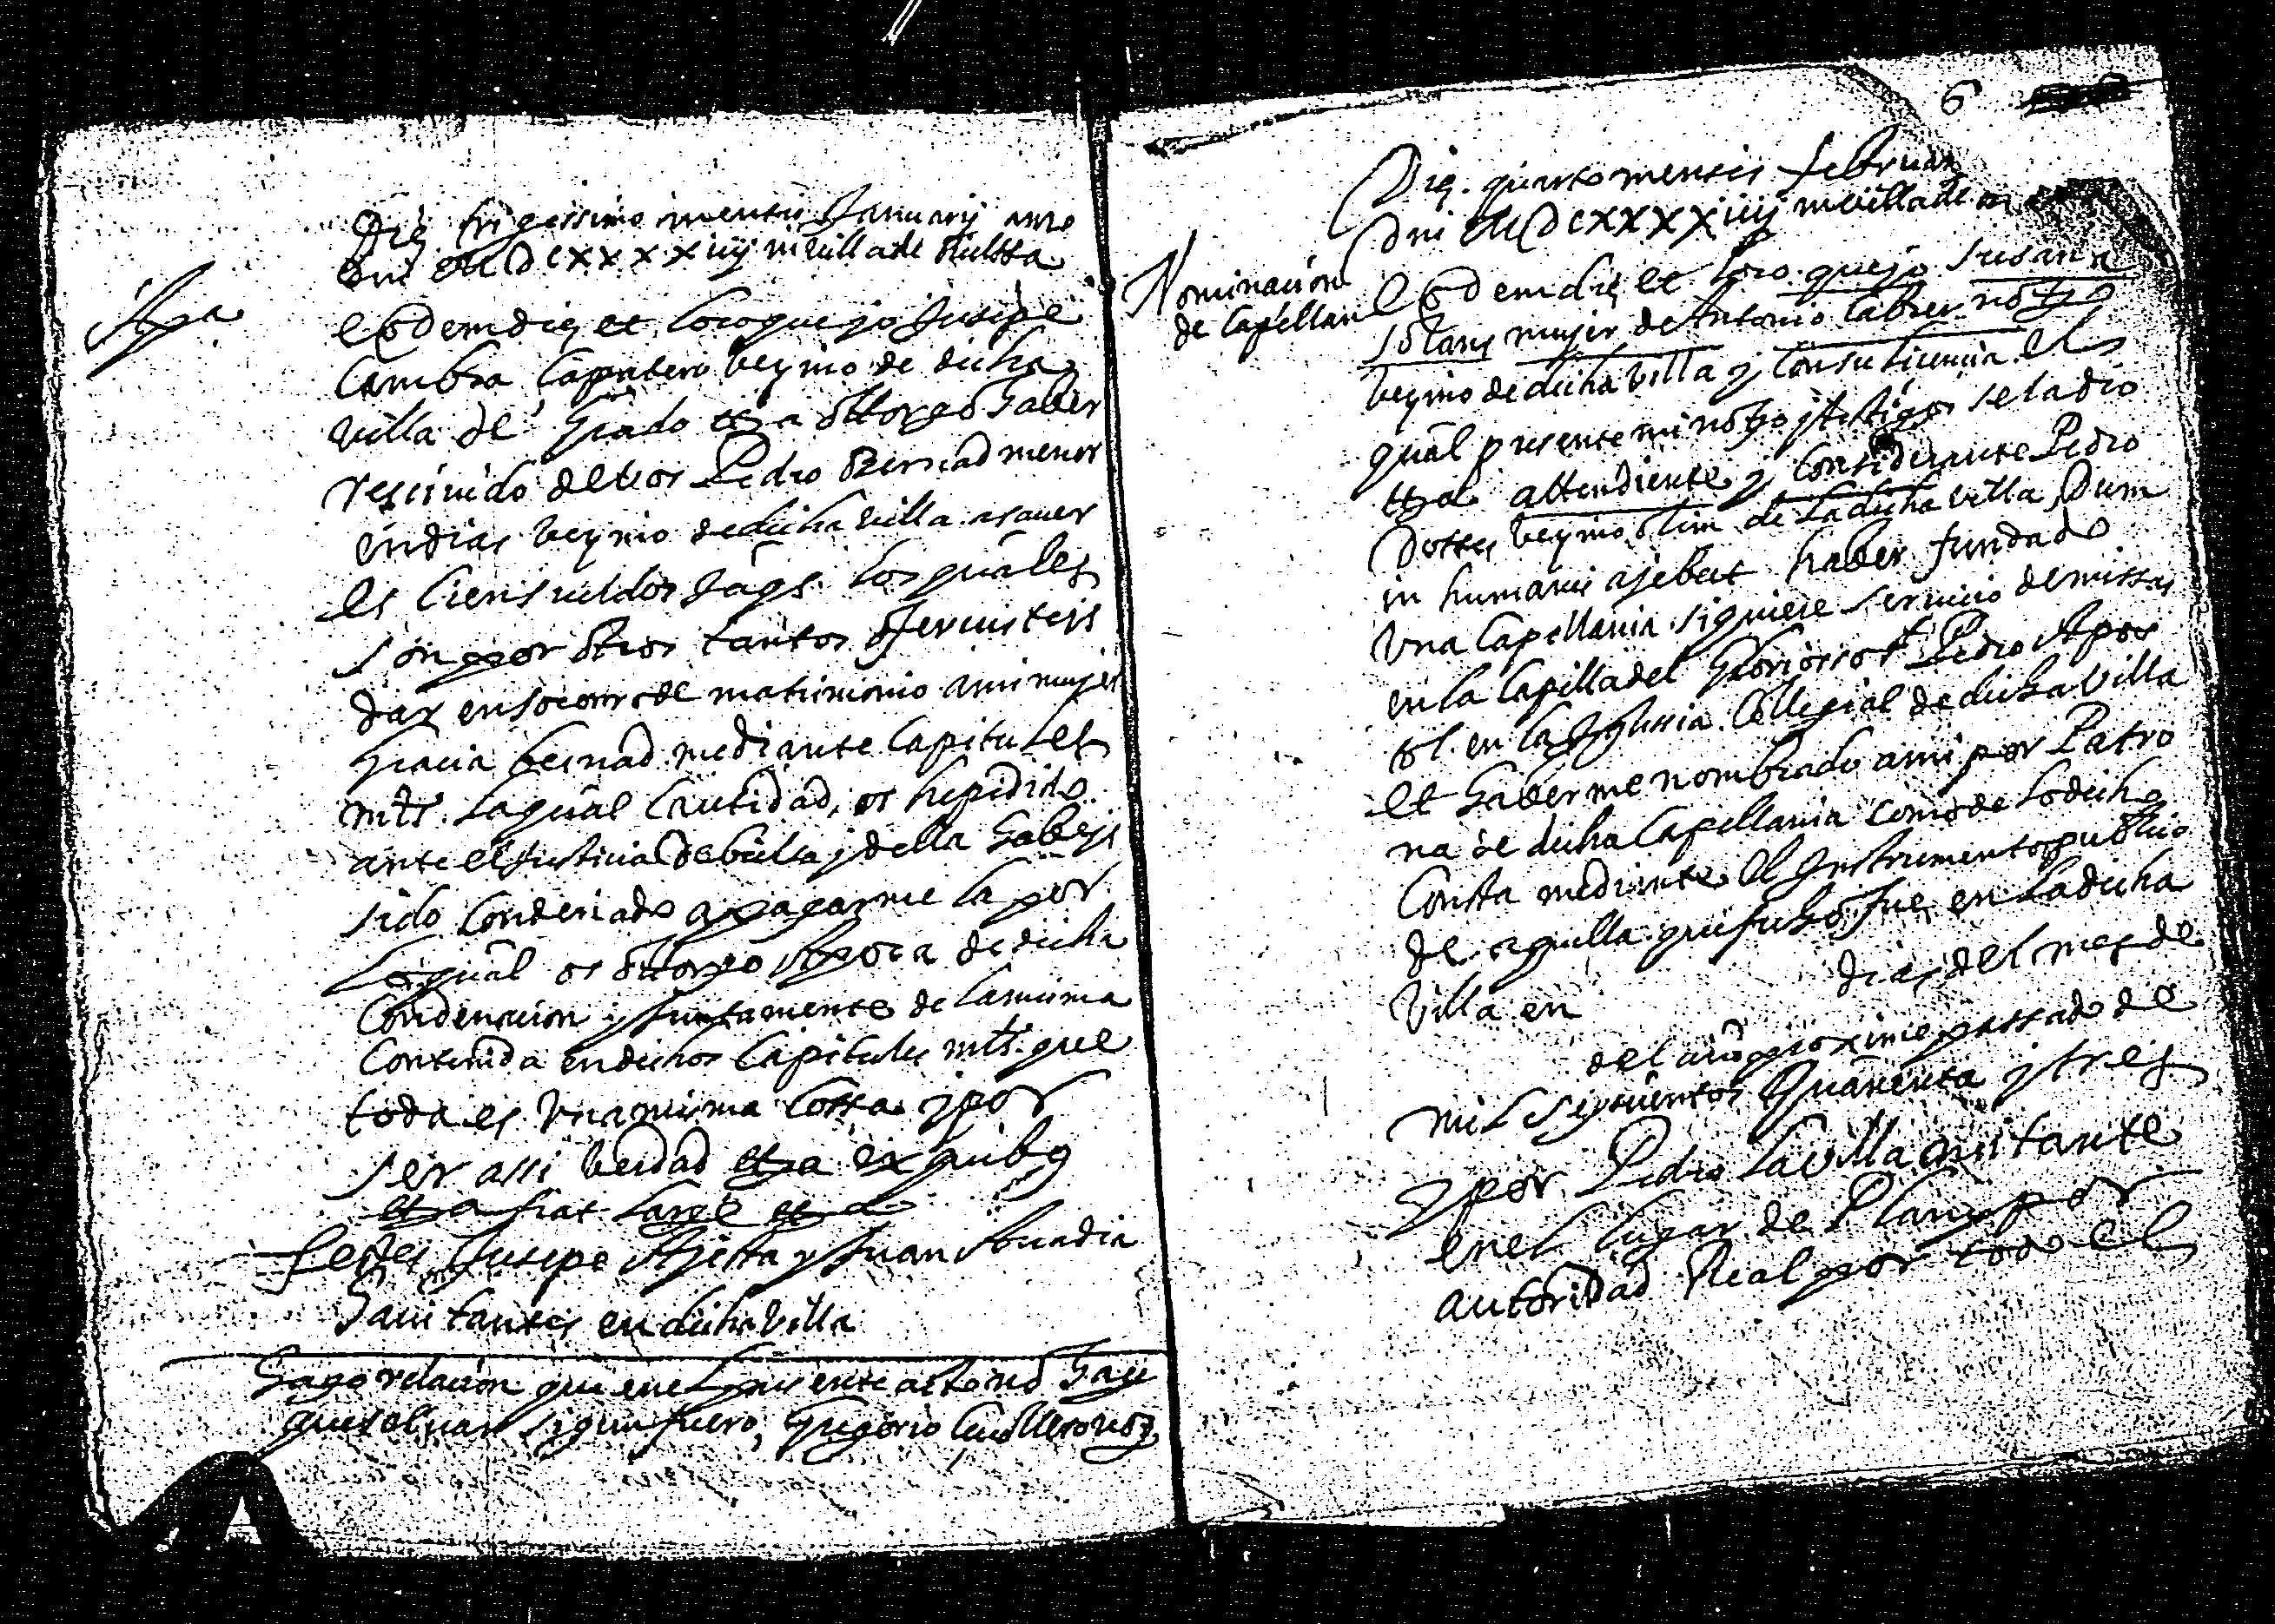 Die trigessimo mensis Januarij anno
Dni MDCXXXXiiij in villa de Bielssa
Apca
Eodem die et loco que yo Jusepe
Cambra Çapatero veçino de dicha
villa de Grado etta ottorgo haber
resciuido de vos Pedro Bernad menor
en dias veçino de dicha villa asaver
es cien sueldos Jaqs. los quales
son por otros tantos ofrecisteis
dar en socorro de matrimonio a mi mujer
Gracia Bernad mediante Capitules
mtls. la qual Cantidad, os he pidido
ante el Justicia de bielsa y della habeys
sido Condenado a pagarme la por
lo qual os ottorgo Apoca de dicha
Condenacion y juntamente de la misma
Contenida en dichos Capitules mtls. que
toda es vna misma Cossa y por
ser assi verdad etta ex quibus
etta fiat large etta
Testes Jusepe Ajerta y Juan
Hauitantes en dicha villa
Hago relacion que en el presente acto no hay
que salvar sigun fuero, Gregorio not.
6
Die quarto mensis februar
Dni MDCXXXXiiij in villa de
Nominacion
de Capellan
Eodem die et loco que yo Susana
Solans mujer de Antonio Cabrer notro
veçino de dicha villa y con su licencia el
qual presente mi notro y testigos se la dio
etta attendiente y Considerante Pedro
Dosses veçino olim de la dicha villa, Dum
in humanis ajebat haber fundado
vna Capellania siquiere servicio de missas
en la Capilla del Gloriosso St. Pedro Apos
tol en la Iglessia Collegial de dicha villa
et haberme nombrado a mi por Patro
na de dicha Capellania como de lo dicho
Consta mediante el Instrumento publico
de aquella que fecho fue en la dicha
villa en dias del mes de
del año proxime passado de
mil seyscientos Quarenta y tres
y por Pedro Lavilla auitante
en el lugar de Plan y por
autoridad Real por todo el